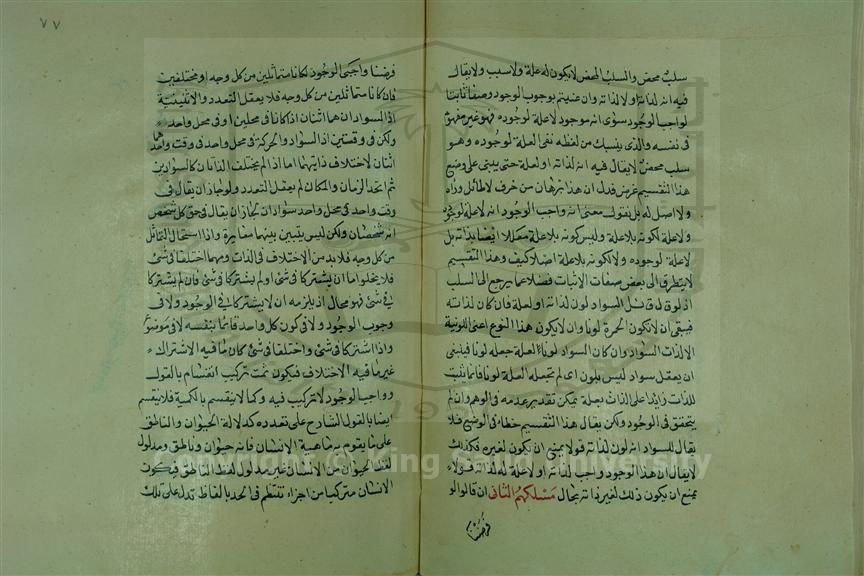 سلب محض والسلب المحض لا يكون له علة ولا سبب ولا يقال
فيه انه لذاته او لا لذاته وان عنيتم بوجوب الوجود وصفا ثابتا
لواجب الوجود سوى انه موجود لا علة لوجوده فهو غير مفهوم
فى نفسه والذى ينسبك من لفظه نفى العلة لوجوده وهو
سلب محض لا يقال فيه انه لذاته او لعلة حتى يبنى على وضع
هذا التقسيم غرض فدل ان هذا برهان من خرف لا طائل وراه
ولا اصل له بل نقول معنى انه واجب الوجود انه لا علة لوجوده
ولا علة لكونه بلا علة وليس كونه بلا علة معللا ايضا بذاته بل
لا علة لوجوده ولا لكونه بلا علة اصلا كيف وهذا التقسيم
لا يتطرق الى بعض صفات الاثبات فضلا عما يرجع الى السلب
اذ لو قال قائل السواد لون لذاته او لعلة فان كان لذاته
فينبغى ان لا تكون الحمرة لونا وان لا يكون هذا النوع اعنى اللونية
الا لذات السواد وان كان السواد لونا لعلة جعله لونا فينبغى
ان يعقل سواد ليس بلون اى لم تجعله العلة لونا فانما يثبت
للذات زائدا على الذات بعلة يمكن تقدير عدمه فى الوهم وان لم
يتحقق فى الوجود ولكن يقال هذا التقسيم خطاء فى الوضع فلا
يقال للسواد انه لون لذاته قولا يمنع ان يكون لغيره فكذلك
لا يقال ان هذا الوجود واجب لذاته او لا علة له لذاته قولاء
يمنع ان يكون ذلك لغير ذاته بحال مسلكهم الثانى ان قالوا لو
فرضنا
٧٧
فرضنا واجبى الوجود لكانا متماثلين من كل وجه او مختلفين
فان كانا متماثلين من كل وجه فلا يعقل التعدد والاثنينية
اذ السوادان هما اثنان اذا كانا فى محلين او فى محل واحد
ولكن فى وقتين اذ السواد والحركة فى محل واحد فى وقت واحد هما
اثنان لاختلاف ذاتيهما اما اذا لم يختلف الذاتان كالسوادين
ثم اتحد الزمان والمكان لم يعقل التعدد ولو جاز ان يقال فى
وقت واحد فى محل واحد سوادان لجاز ان يقال فى حق كل شخص
انه شخصان ولكن ليس يتبين بينهما مغايرة واذا استحال التماثل
من كل وجه فلا بد من الاختلاف فى الذات ومهما اختلفا فى شئ
فلا يخلوا اما ان يشتركا فى شئ او لم يشتركا فى شئ فان لم يشتركا
فى شئ فهو محال اذ يلزمه ان لا يشتركا فى الوجود ولا فى
وجوب الوجود ولا فى كون كل واحد قائما بنفسه لا فى موضوع
واذا اشتركا فى شئ واختلفا فى شئ كان ما فيه الاشتراك
غير ما فيه الاختلاف فيكون ثمت تركيب انقسام بالقول
وواجب الوجود لا تركيب فيه وكما لا ينقسم بالكمية فلا ينقسم
ايضا بالقول الشارح على تعدده كدلالة الحيوان والناطق
على ما يقوم به ماهية الانسان فانه حيوان وناطق ومدلول
لفظ الحيوان من الانسان غير مدلول لفظ الناطق فيكون
الانسان متركبا من اجزاء تنتظم فى الحد بالفاظ تدل على تلك
Copyright © King Saud University